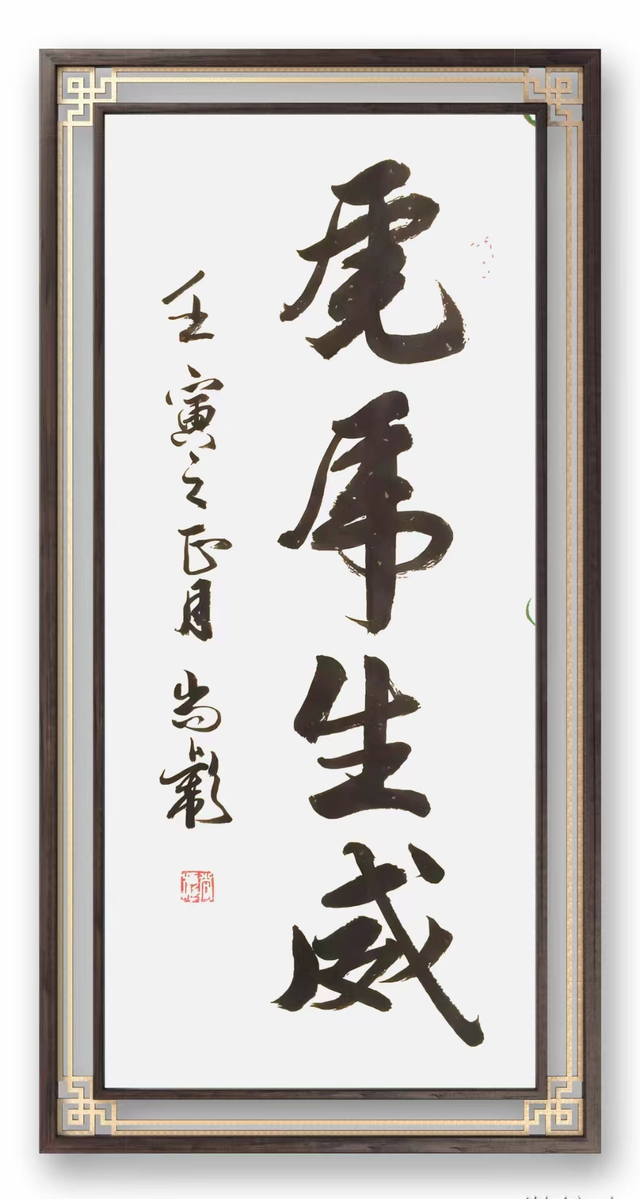 虎虎生威
壬寅之正月 尚